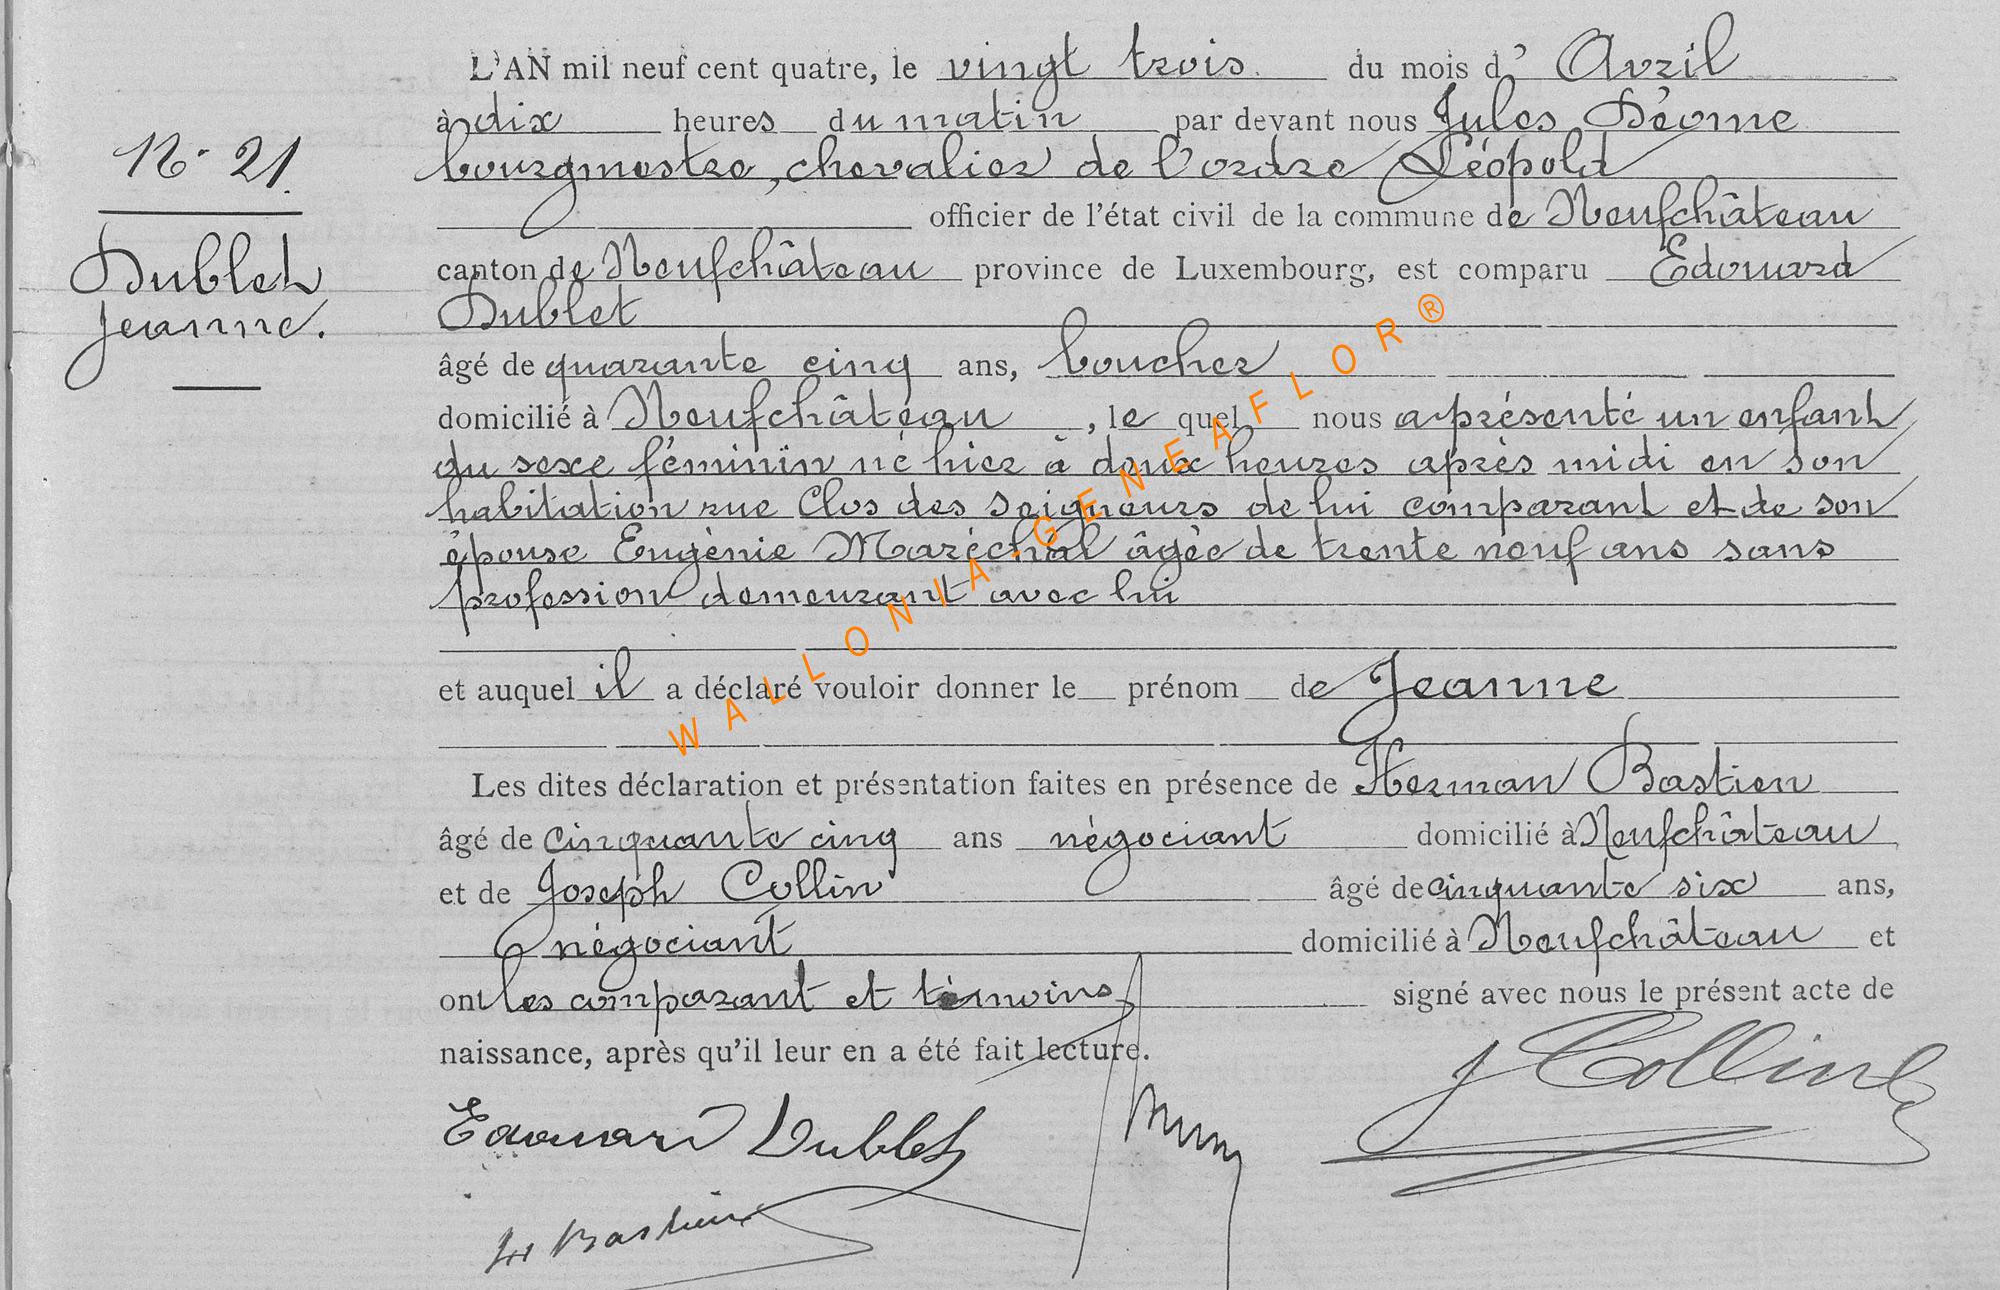 L'AN mil neuf cent quatre, le vingt trois du mois d' Avril
à dix heures du matin par devant nous Jules Déome
bourgmestre, chevalier de l'ordre Léopold
officier de l'état civil de la commune de Neufchâteau
canton de Neufchâteau province de Luxembourg, est comparu Edouard
Dublet
âgé de quarante cinq ans, boucher
domicilié à Neufchâteau, le quel nous a présenté un enfant
du sexe féminin né hier à deux heures après midi en son
habitation rue Clos des Seigneurs de lui comparant et de son
épouse Eugènie Maréchal âgée de trente neuf ans sans
profession demeurant avec lui
et auquel il a déclaré vouloir donner le prénom de Jeanne
Les dites déclaration et présentation faites en présence de Herman Bastien
âgé de cinquante cinq ans négociant domicilié à Neufchâteau
et de Joseph Collin âgé de cinquante six ans,
négociant domicilié à Neufchâteau et
ont les comparant et témoins signé avec nous le présent acte de
naissance, après qu'il leur en a été fait lecture.
Nº 21.
Dublet
Jeanne.
Edouard Dublet
J Collin
H Bastien
WALLONIA-GENEAFLOR®